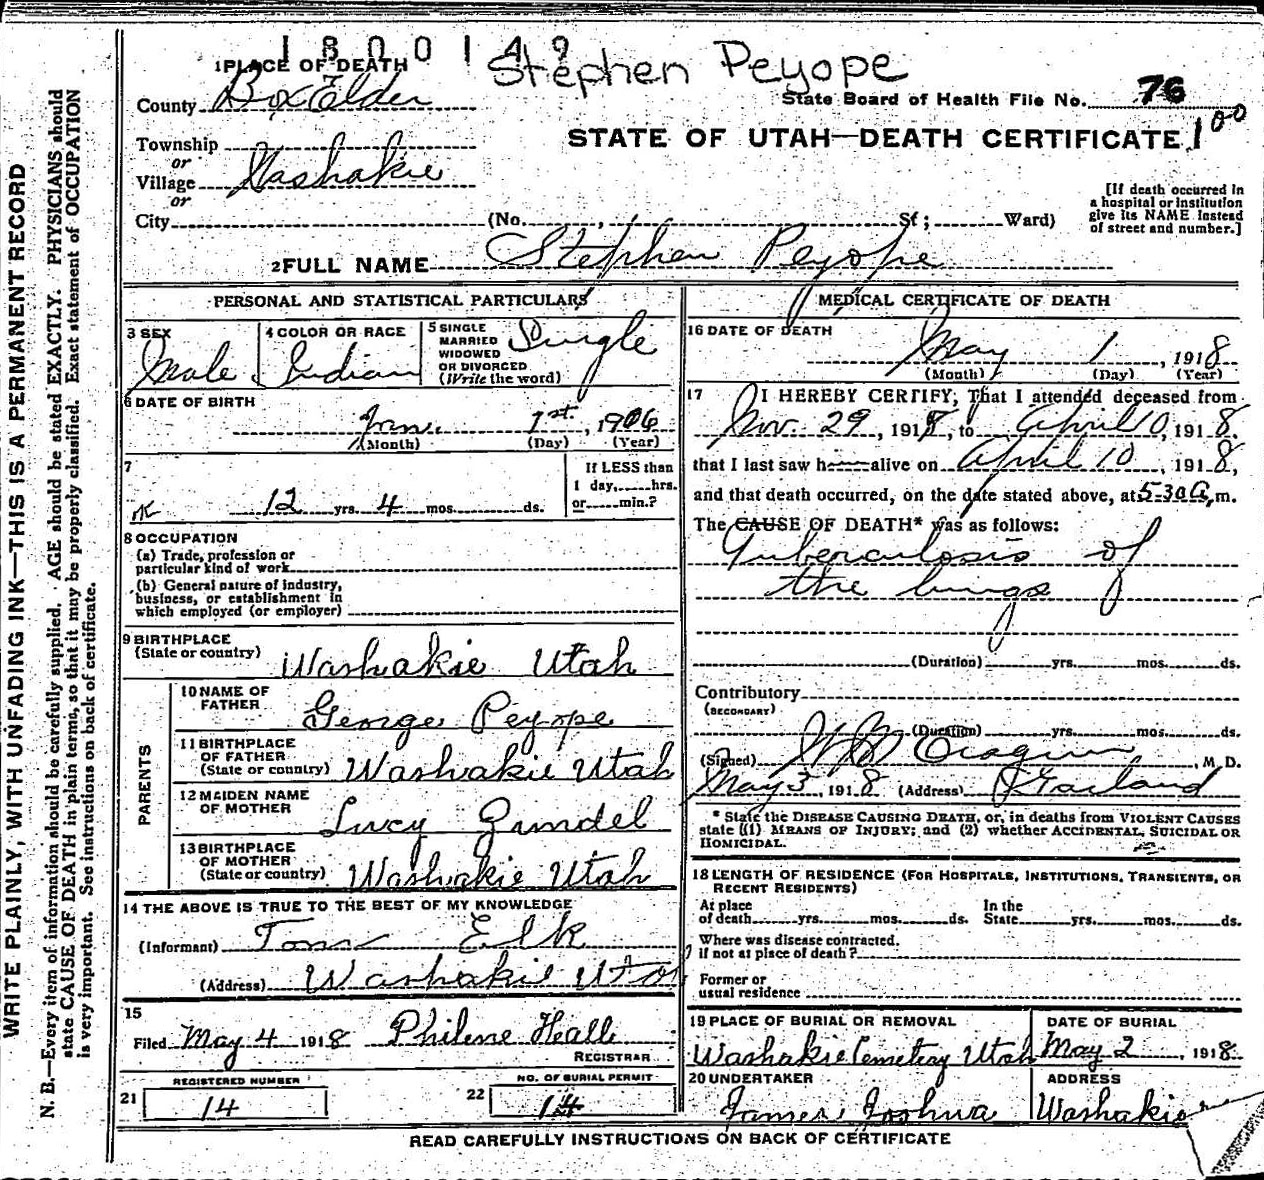 1800149
Stephen Peyope
1 PLACE OF DEATH
County Box Elder
State Board of Health File No. 76
Township
or
Village Washakie
or
STATE OF UTAH—DEATH CERTIFICATE 100
[If death occurred in
a hospital or institution
give its NAME instead
of street and number.]
City (No. , St; Ward)
2 FULL NAME Stephen Peyope
PERSONAL AND STATISTICAL PARTICULARS
3 SEX
Male
4 COLOR OR RACE
Indian
5 SINGLE
MARRIED
WIDOWED
OR DIVORCED
(Write the word)
Single
6 DATE OF BIRTH
Jan. 1st, 1906
(Month) (Day) (Year)
7
12 yrs. 4 mos. ds.
If LESS than
1 day, hrs.
or min.?
8 OCCUPATION
(a) Trade, profession or
particular kind of work
(b) General nature of industry,
business, or establishment in
which employed (or employer)
9 BIRTHPLACE
(State or country) Washakie Utah
PARENTS
10 NAME OF
FATHER George Peyope
11 BIRTHPLACE
OF FATHER
(State or country) Washakie Utah
12 MAIDEN NAME
OF MOTHER Lucy Grundel
13 BIRTHPLACE
OF MOTHER
(State or country) Washakie Utah
14 THE ABOVE IS TRUE TO THE BEST OF MY KNOWLEDGE
(Informant) Tom Elk
(Address) Washakie Utah
15
Filed May 4 1918 Philene Hall
REGISTRAR
REGISTERED NUMBER
21 14
NO. OF BURIAL PERMIT
22 14
MEDICAL CERTIFICATE OF DEATH
16 DATE OF DEATH
May 1, 1918
(Month) (Day) (Year)
17 I HEREBY CERTIFY, That I attended deceased from
Nov. 29, 1918, to April 10, 1918.
that I last saw h alive on April 10, 1918,
and that death occurred, on the date stated above, at 5-30 A. m.
The CAUSE OF DEATH* was as follows:
Tuberculosis of
the lungs
(Duration) yrs. mos. ds.
Contributory
(SECONDARY)
(Duration) yrs. mos. ds.
(Signed) , M. D.
May 3, 1918 (Address) Garland
* State the DISEASE CAUSING DEATH, or, in deaths from VIOLENT CAUSES
state (1) MEANS OF INJURY; and (2) whether ACCIDENTAL, SUICIDAL OR
HOMICIDAL.
18 LENGTH OF RESIDENCE (FOR HOSPITALS, INSTITUTIONS, TRANSIENTS, OR
RECENT RESIDENTS)
At place
of death yrs. mos. ds.
In the
State yrs. mos. ds.
Where was disease contracted.
if not at place of death?
Former or
usual residence
19 PLACE OF BURIAL OR REMOVAL
Washakie Cemetery Utah
DATE OF BURIAL
May 2, 1918
20 UNDERTAKER
James Joshua
ADDRESS
Washakie
READ CAREFULLY INSTRUCTIONS ON BACK OF CERTIFICATE
WRITE PLAINLY, WITH UNFADING INK—THIS IS A PERMANENT RECORD
N. B.—Every item of information should be carefully supplied. AGE should be stated EXACTLY. PHYSICIANS should
state CAUSE OF DEATH in plain terms, so that it may be properly classified. Exact statement of OCCUPATION
is very important. See instructions on back of certificate.